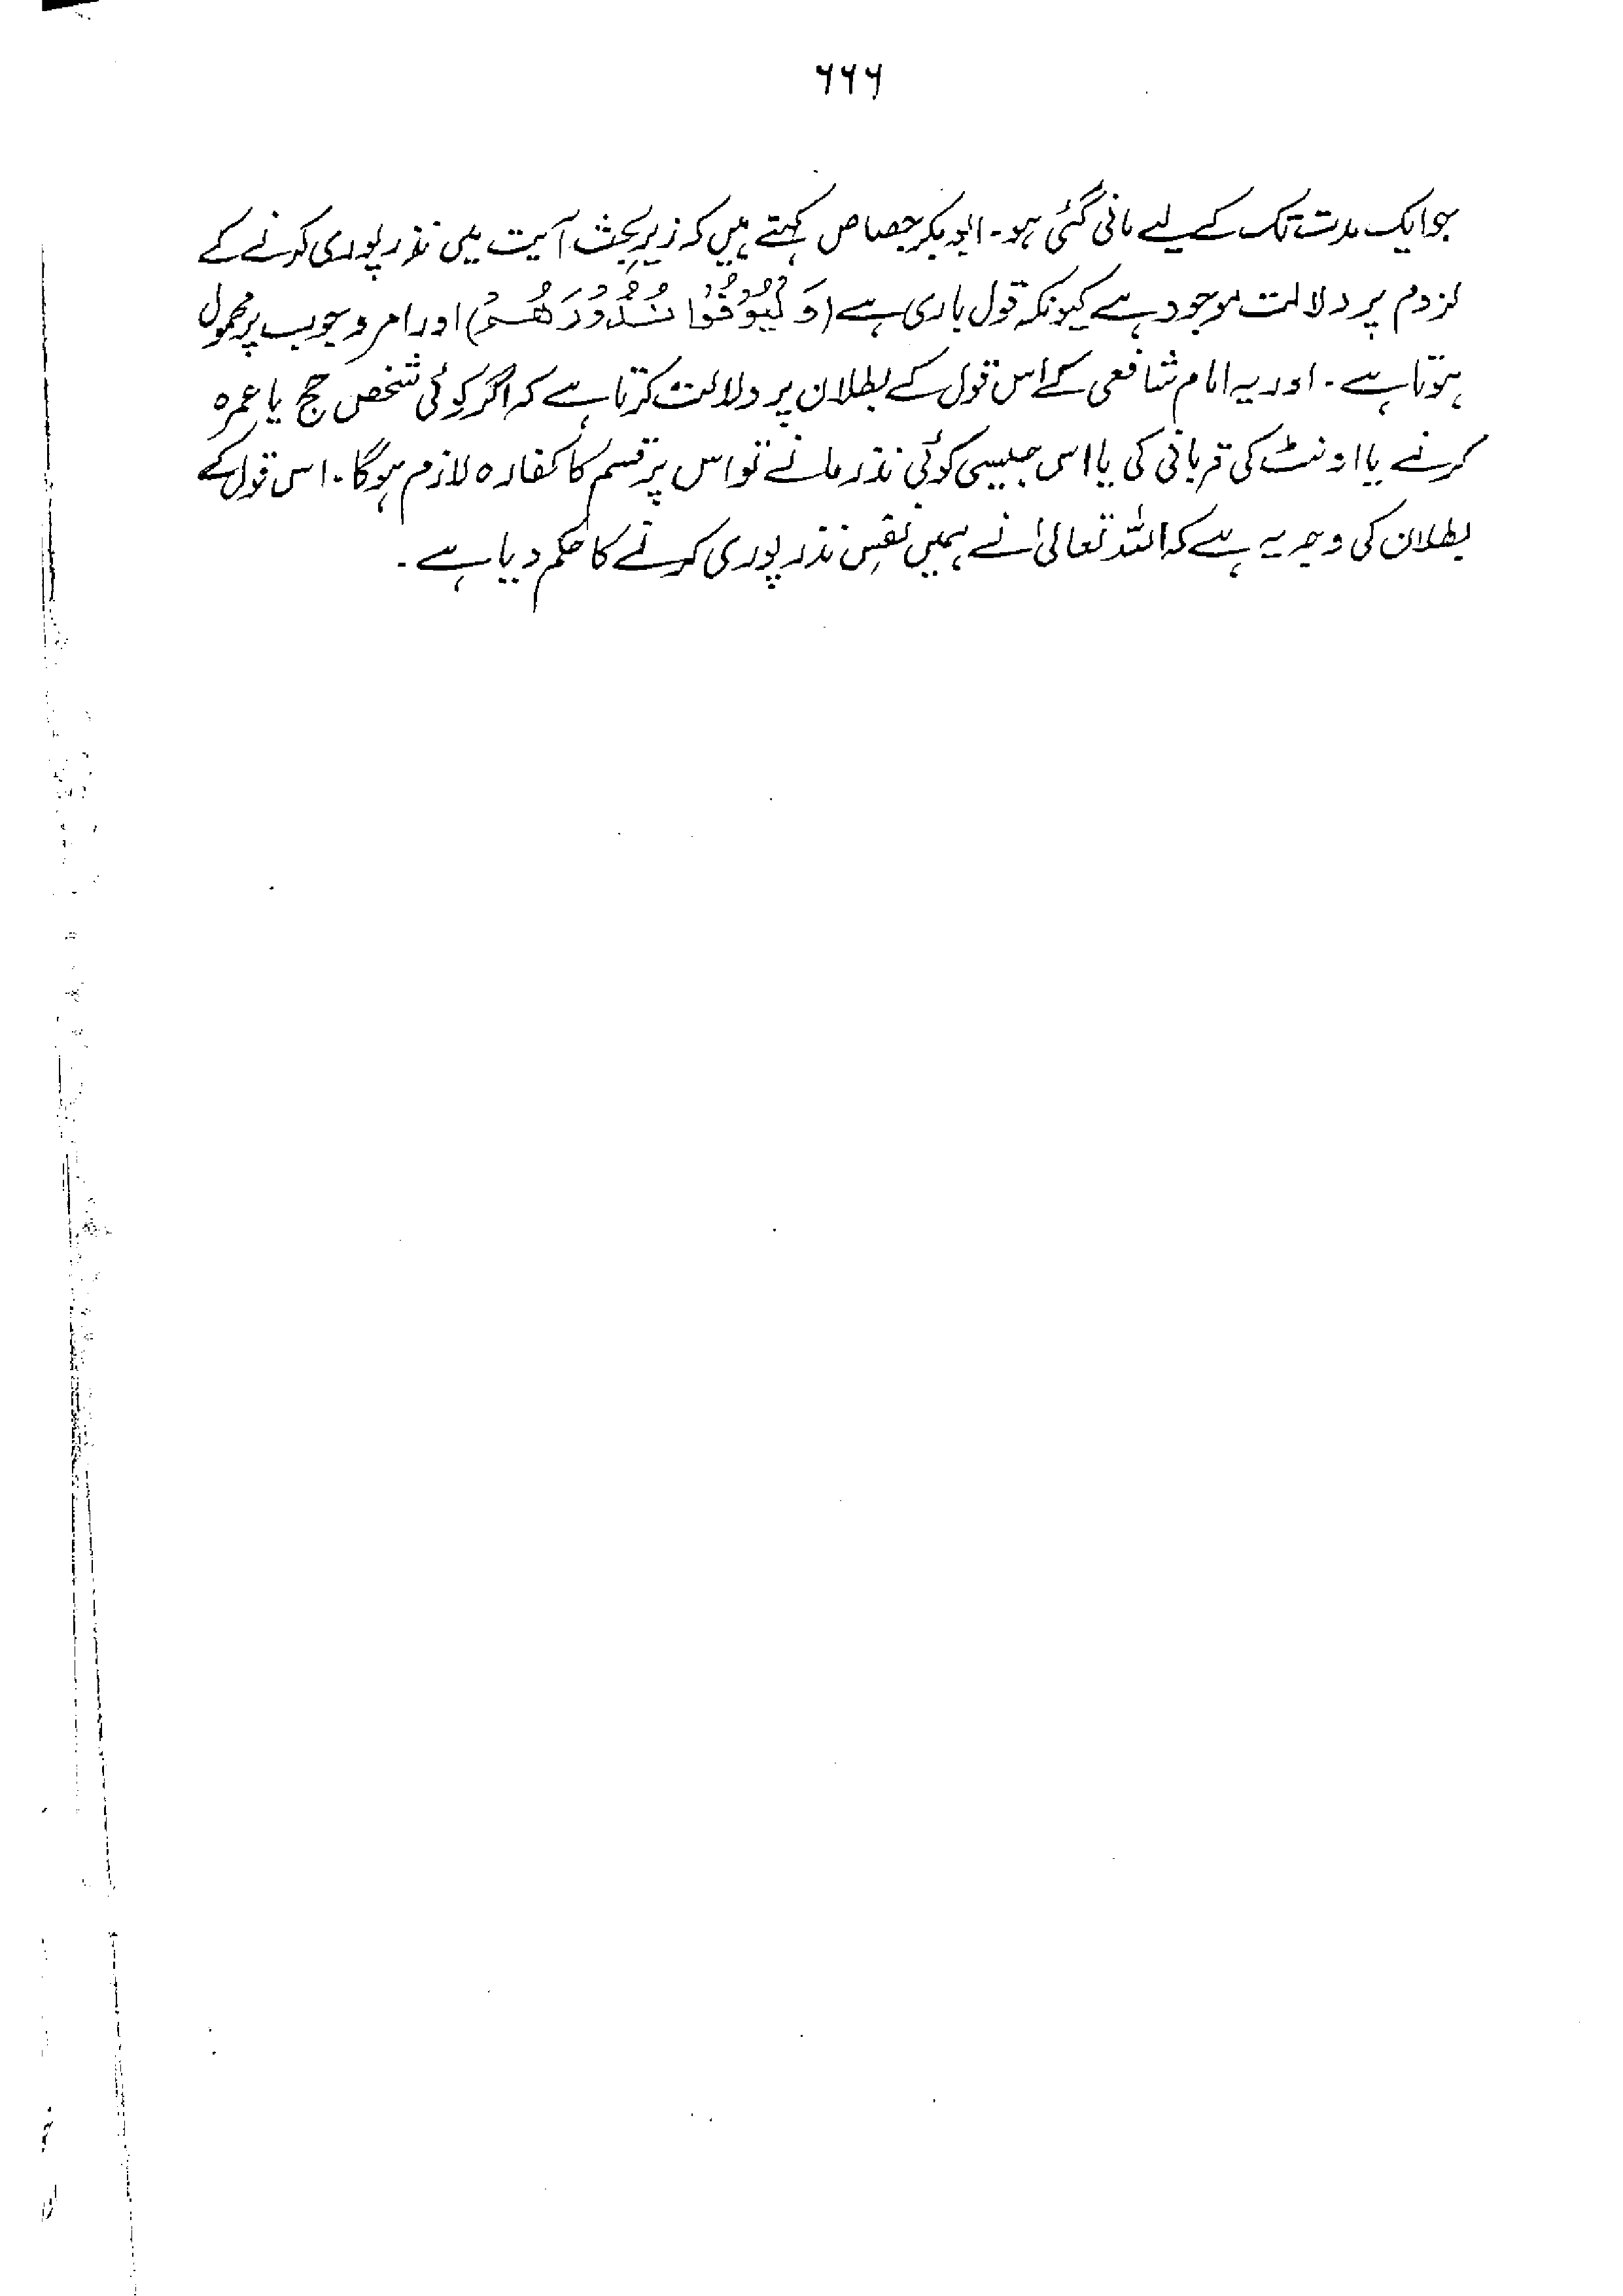 ۶۶۶
جو ایک مدت تک کے لیے مانی گئی ہو۔ ابو بکر جصاص کہتے ہیں کہ زیرِ بحث آیت میں نذر پوری کرنے کے
لزوم پر دلالت موجود ہے کیونکہ قول باری ہے (وَلْیُوْفُوْا نُذُوْرَھُمْ) اور امر وجوب پر محمول
ہوتا ہے۔ اور یہ امام شافعی کے اس قول کے بطلان پر دلالت کرتا ہے کہ اگر کوئی شخص حج یا عمرہ
کرنے یا اونٹ کی قربانی کی یا اس جیسی کوئی نذر مانے تو اس پر قسم کا کفارہ لازم ہوگا۔ اس قول کے
بطلان کی وجہ یہ ہے کہ اللہ تعالیٰ نے ہمیں نفسِ نذر پوری کرنے کا حکم دیا ہے۔